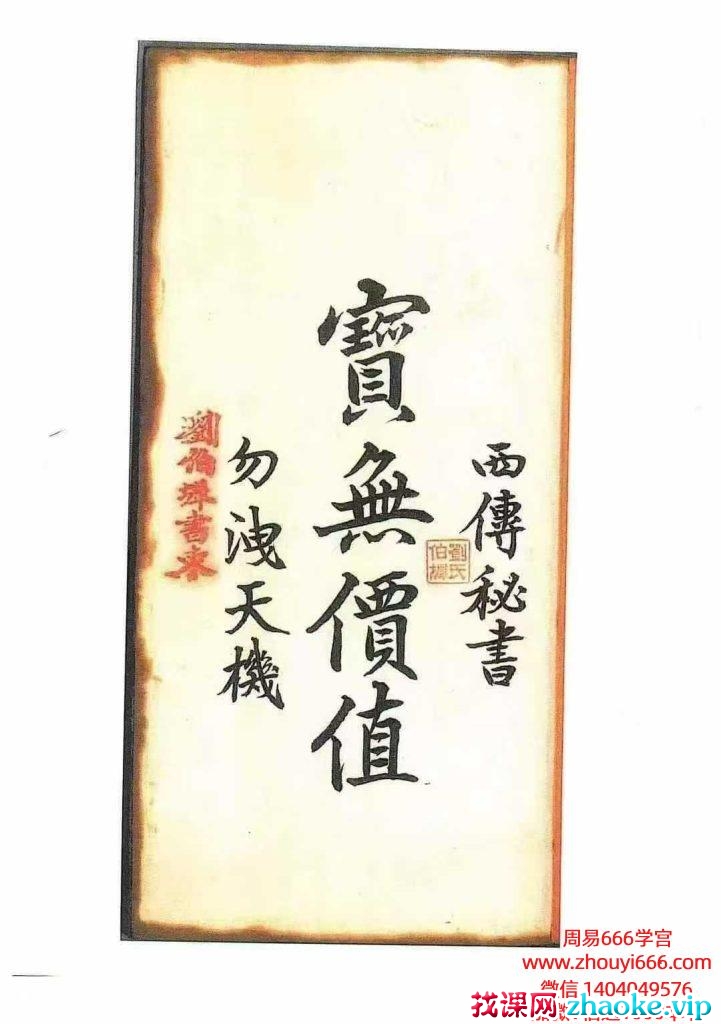 西傳秘書
劉氏
伯
寶無價值
勿洩天機
劉伯
書
周易666学宫
www.zhouyi666.com
微信 1404049576
找课网zhaoke.vip